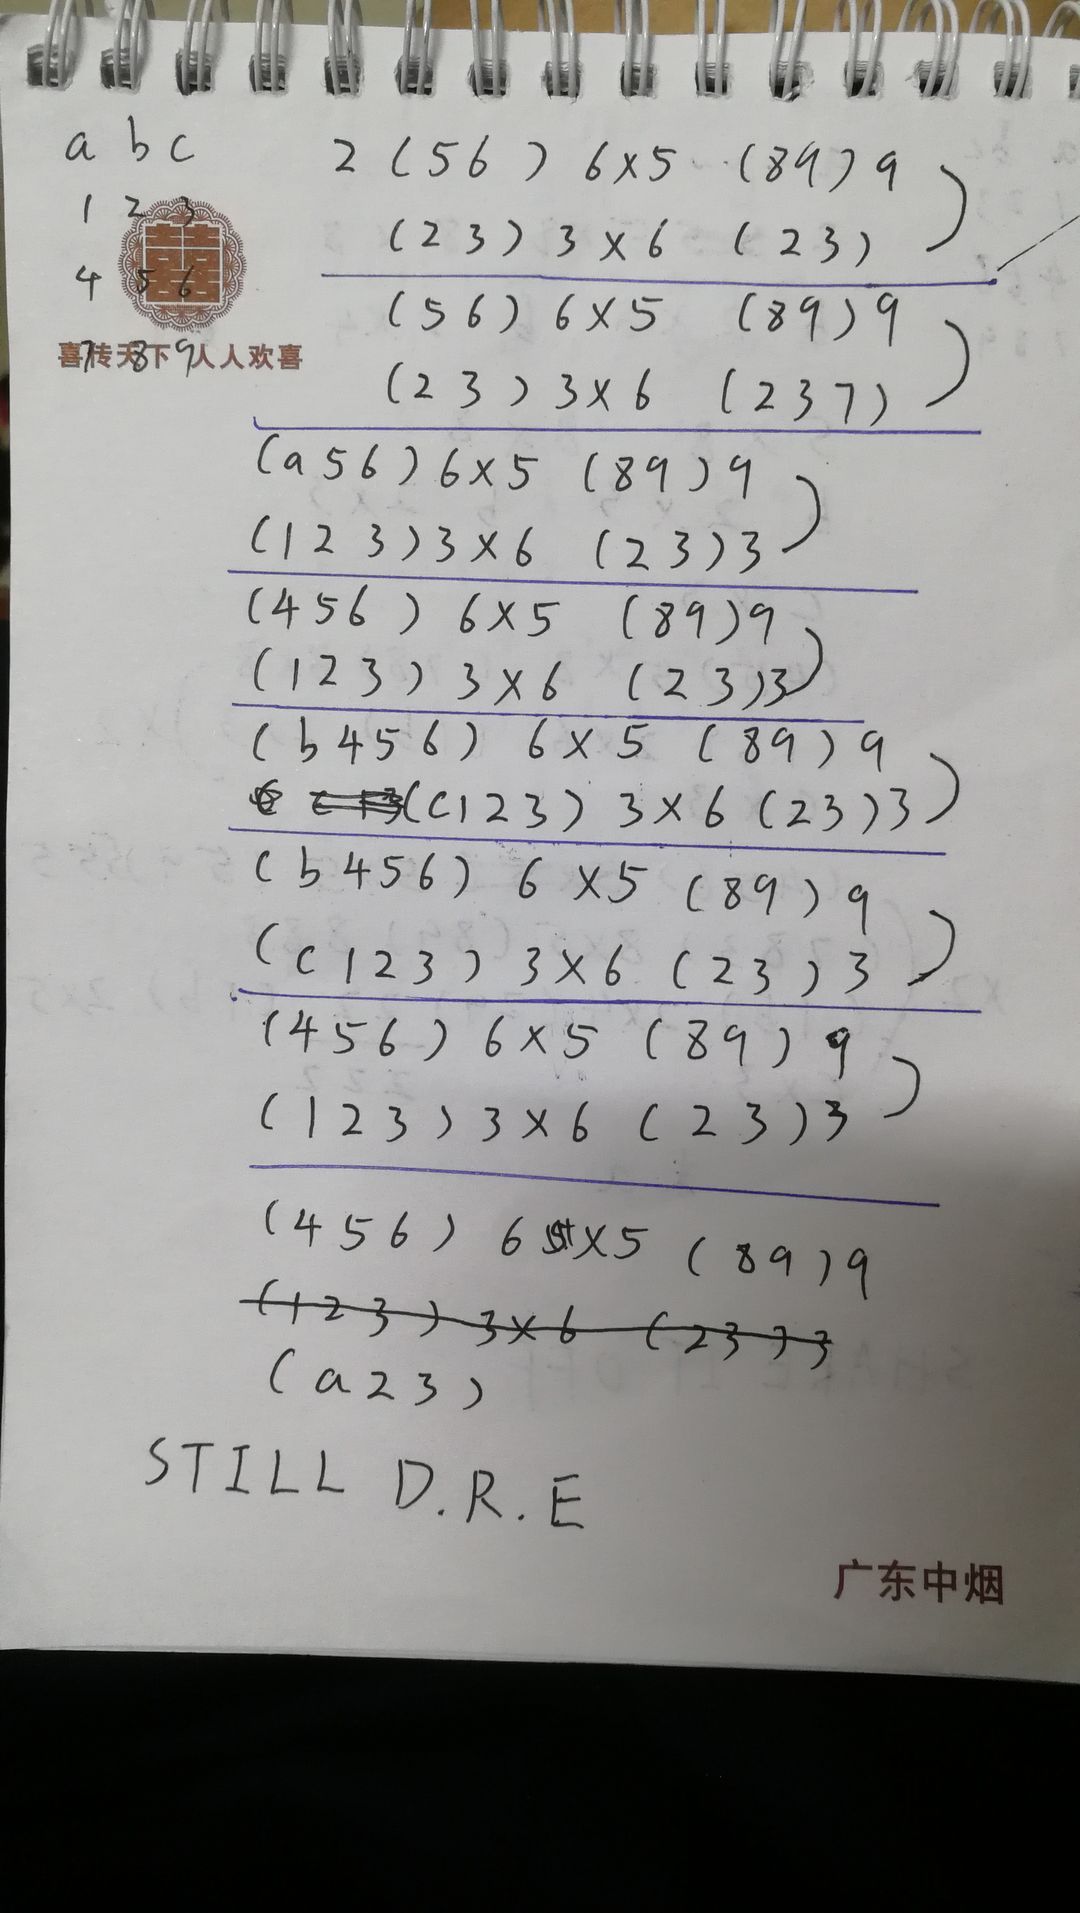 a b c
1 2 3
4 5 6
7 8 9
喜传天下 人人欢喜
2 (56) 6×5 (89)9
(23) 3×6 (23)
(56) 6×5 (89)9
(23) 3×6 (237)
(a56) 6×5 (89)9
(123) 3×6 (23)3
(456) 6×5 (89)9
(123) 3×6 (23)3
(b456) 6×5 (89)9
(c123) 3×6 (23)3
(b456) 6×5 (89)9
(c123) 3×6 (23)3
(456) 6×5 (89)9
(123) 3×6 (23)3
(456) 6×5 (89)9
(123) 3×6 (23)3
(a23)
STILL D.R.E
广东中烟